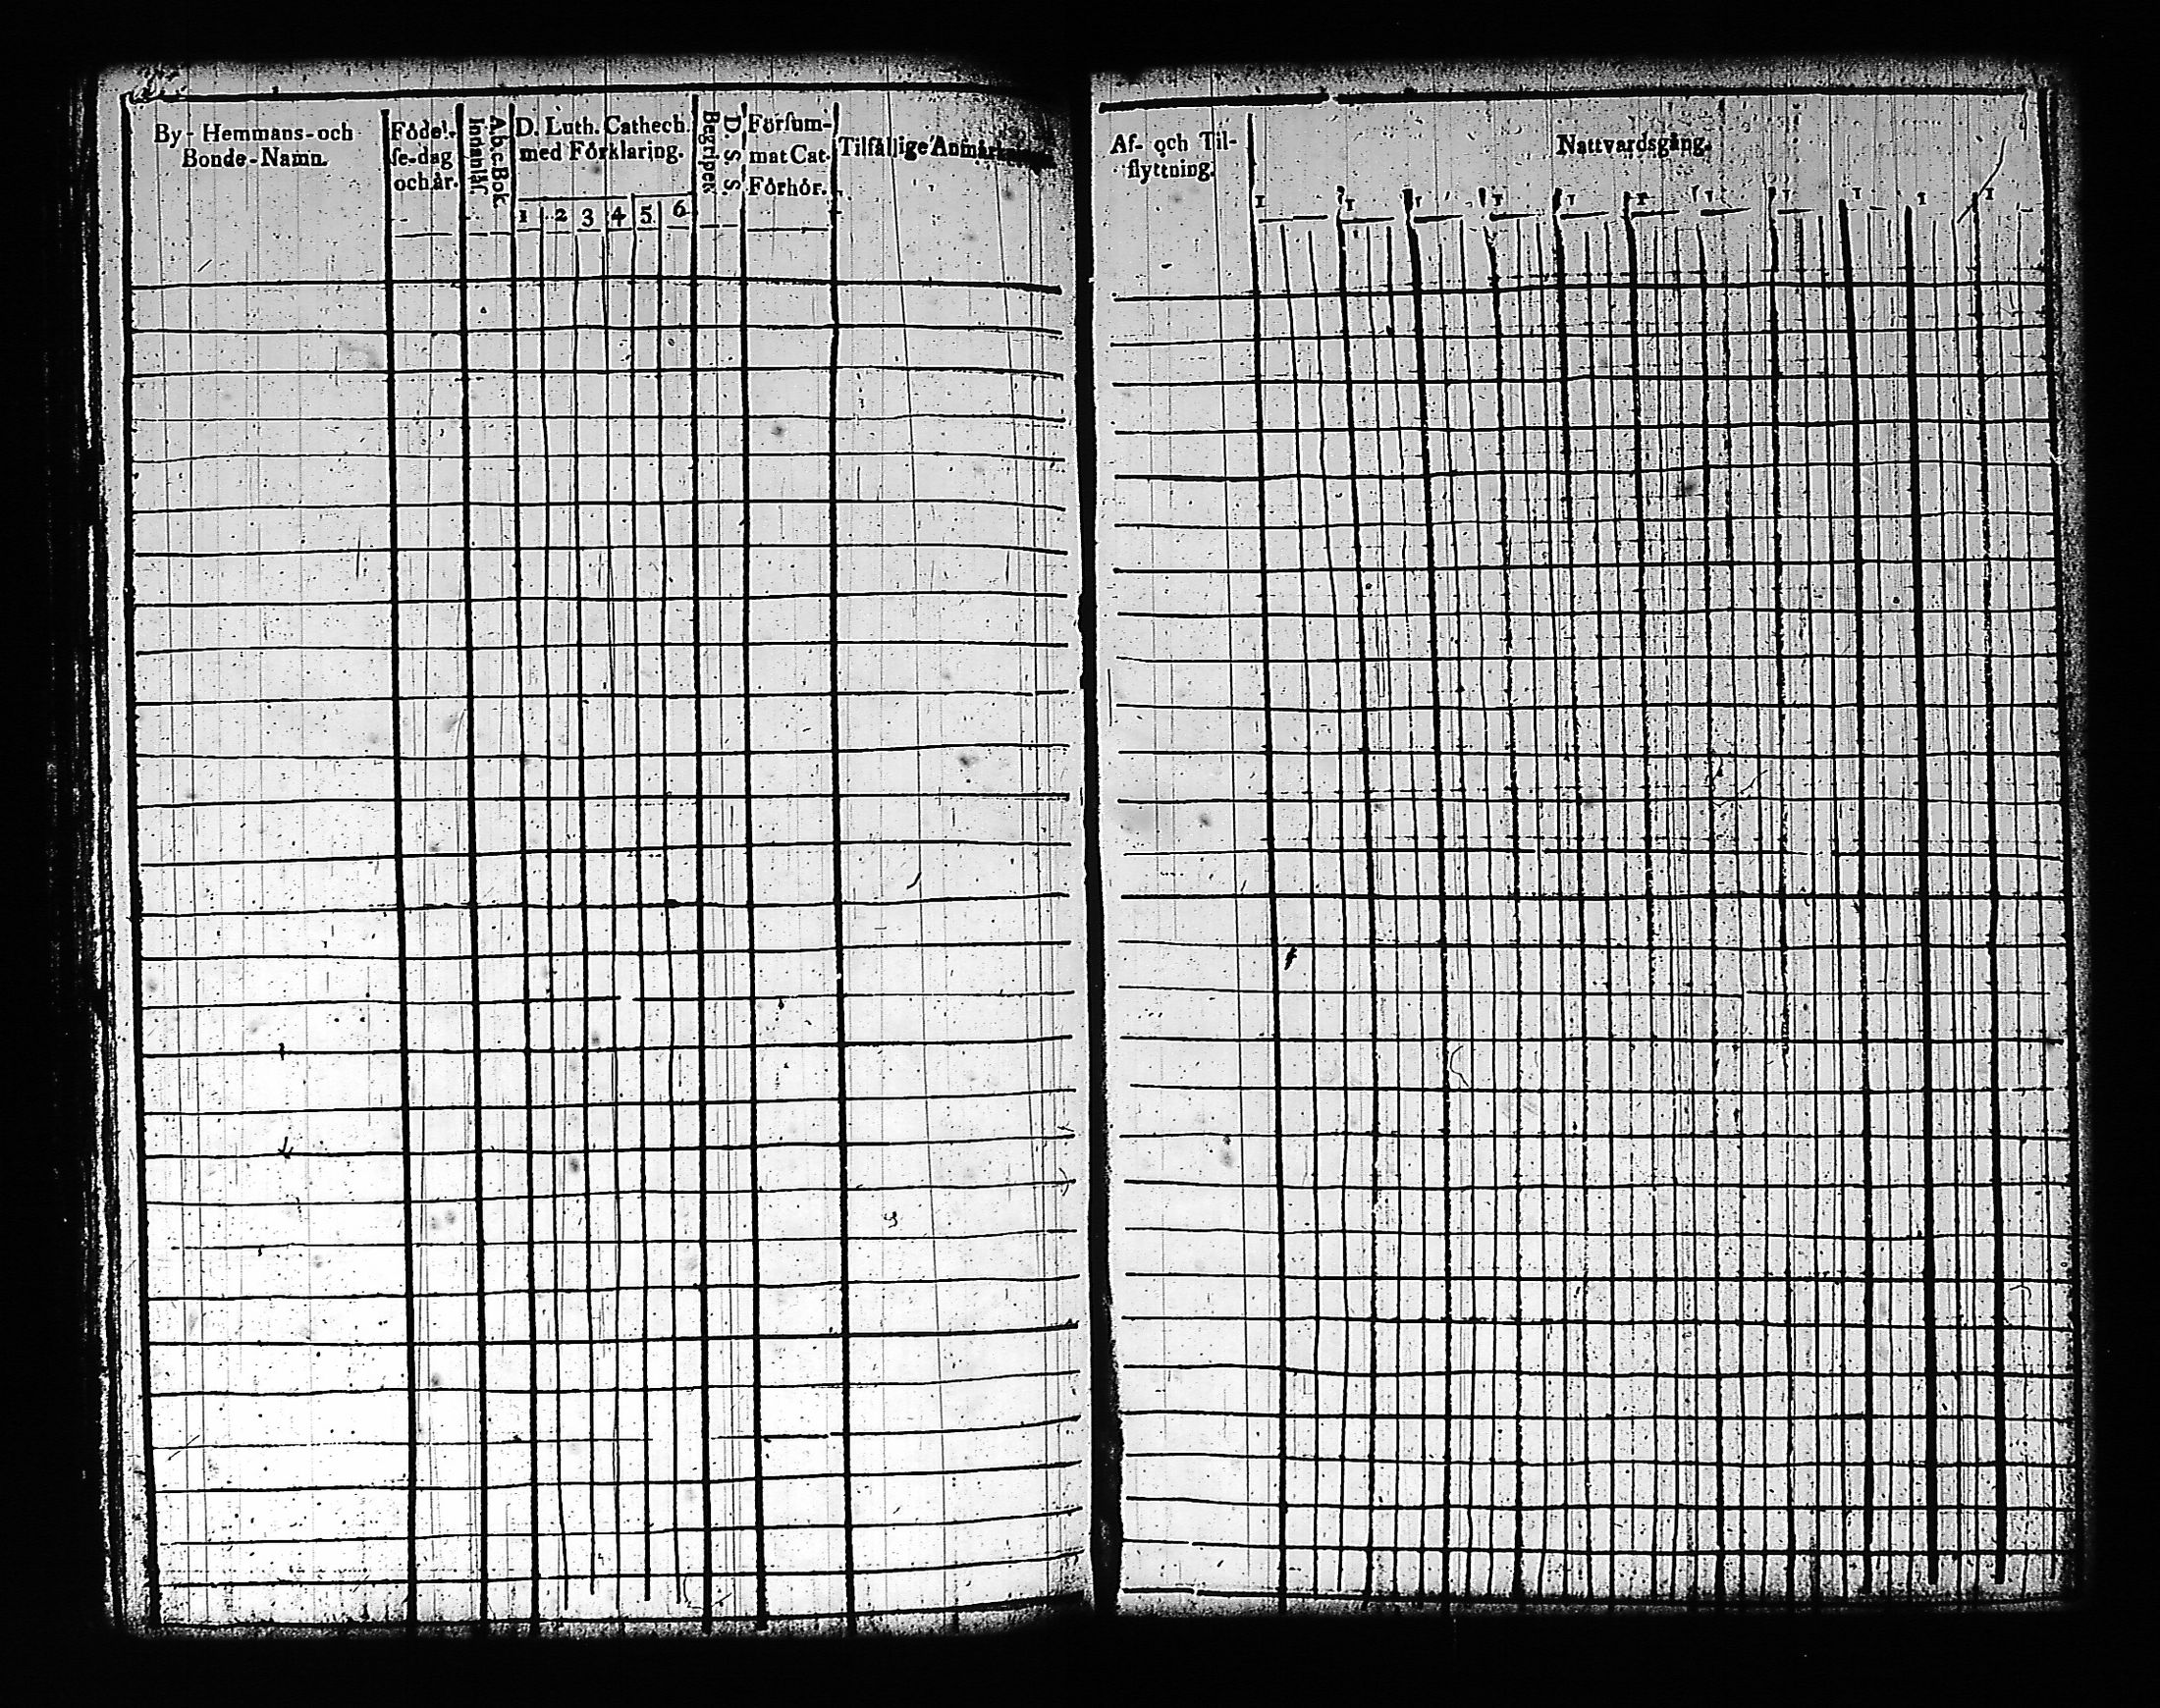 By- Hemmans- och
Bonde-Namn.
Födel-
se-dag
och år.
A.b.c.Bok
Innanlär.
D. Luth. Cathech.
med Förklaring.
1 2 3 4 5 6
Begripet.
D. S. S.
Försum-
mat Cat.
Förhör.
Tilfällige Anmärkningar
Af- och Til-
flyttning.
Nattvardsgång.
1 1 1 1 1 1 1 1 1 1 1